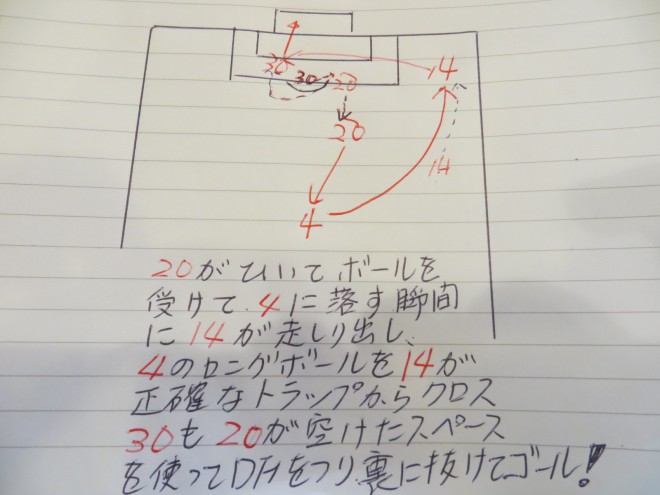 30 30 20 14
20
14
4
20がひいてボールを
受けて4に落す瞬間
に14が走しり出し、
4のロングボールを14が
正確なトラップからクロス
30も20が空けたスペース
を使ってDFをつり裏に抜けてゴール!